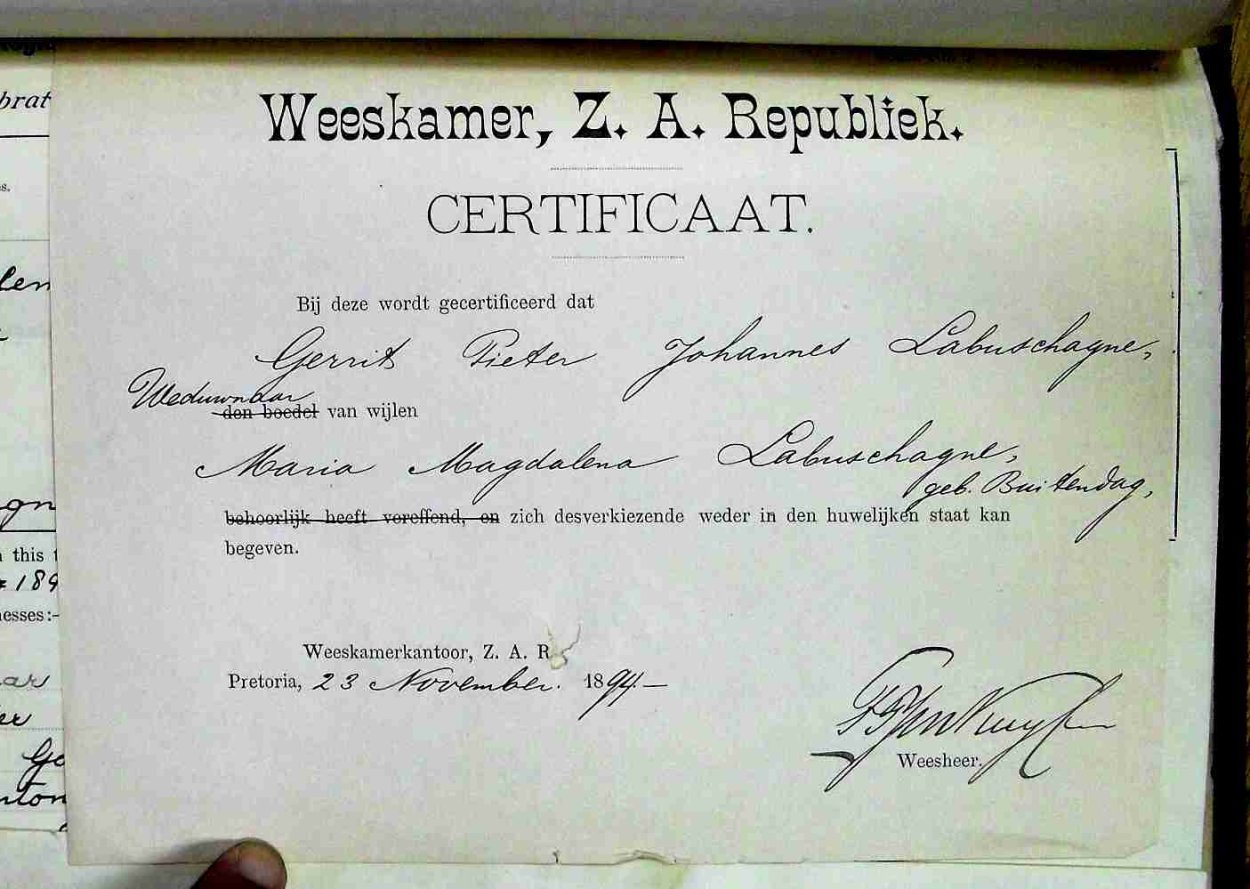 brat
s.
len
gn
this
189
nesses:-
ars
er
Ge
nton
Weeskamer, Z. A. Republiek.
CERTIFICAAT.
Bij deze wordt gecertificeerd dat
Gerrit Pieter Johannes Labuschagne,
Weduwnaar
den boedel van wijlen
Maria Magdalena Labuschagne,
geb. Buitendag,
behoorlijk heeft vereffend, en zich desverkiezende weder in den huwelijken staat kan
begeven.
Weeskamerkantoor, Z. A. R
Pretoria, 23 November. 1894.—
Weesheer.